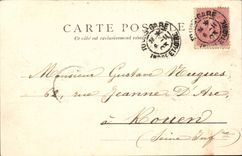 CARTE POSTALE
Ce côté est exclusivement réservé
Monsieur Gustave Hugues
62, rue Jeanne D'Arc
à Rouen
(Seine Infre)